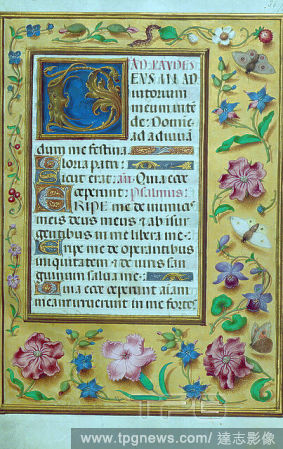 AD LAUDES
DEUS IN AD
iutorium
meum inte
de: Domine
ad adiuvan
dum me festina
Gloria patri:
Sicut erat. añ. Quia ecce
ceperunt. Psalmus:
ERIPE me de inimicis
meis deus meus & ab isur
gentibus in me libera me:
Eripe me de operantibus
iniquitatem & de viris san
guinum salva me:
Quia ecce ceperunt aiam
meam irruerunt in me fortes
TPG
www.tpgnews.com/ 達志影像